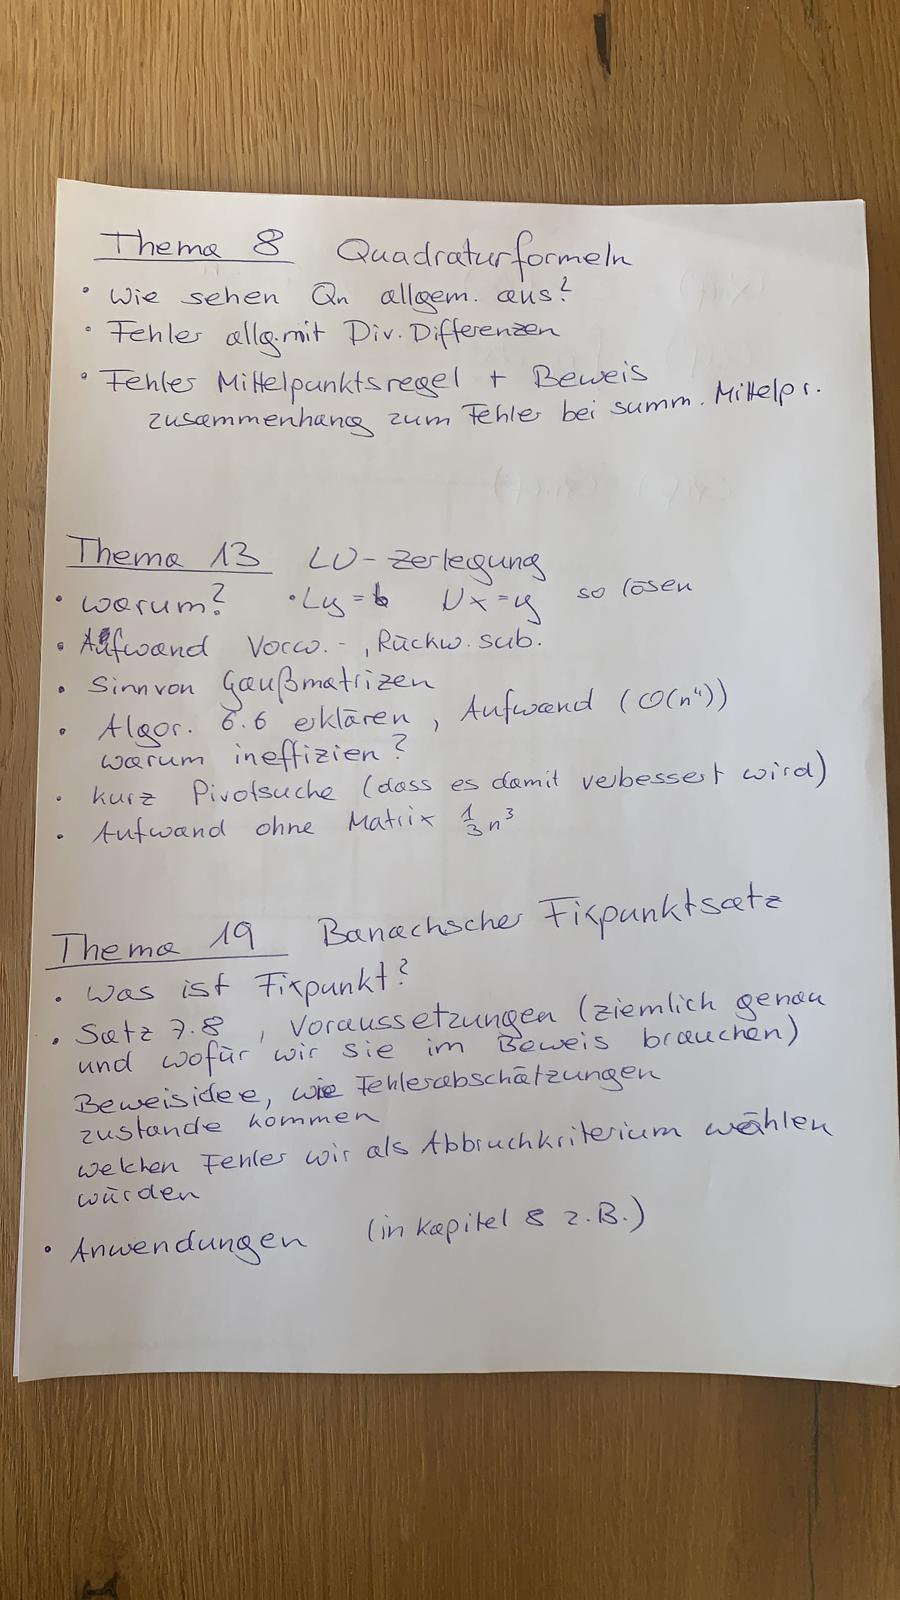 Thema 8 Quadraturformeln
• Wie sehen Qn allgem. aus?
• Fehler allg. mit Div. Differenzen
• Fehler Mittelpunktsregel + Beweis
zusammenhang zum Fehler bei summ. Mittelpr.
Thema 13 LU-Zerlegung
• warum? • Ly = b Ux = y so lösen
• Aufwand Vorw.-, Rückw. sub.
• Sinn von Gaußmatrizen
• Algor. 6.6 erklären, Aufwand (O(n⁴))
warum ineffizien?
• kurz Pivotsuche (dass es damit verbessert wird)
• Aufwand ohne Matrix 1/3 n³
Thema 19 Banachscher Fixpunktsatz
• Was ist Fixpunkt?
• Satz 7.8, Voraussetzungen (ziemlich genau
und wofür wir sie im Beweis brauchen)
Beweisidee, wie Fehlerabschätzungen
zustande kommen
welchen Fehler wir als Abbruchkriterium wählen
würden
• Anwendungen (in Kapitel 8 z.B.)